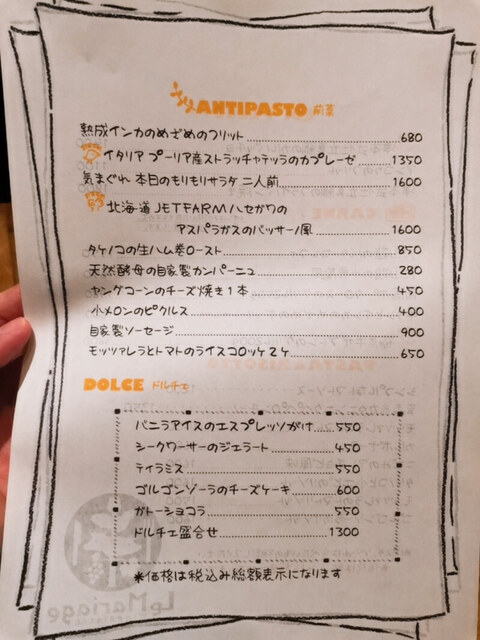 ANTIPASTO 前菜
熟成インカのめざめのフリット 680
イタリア プーリア産ストラッチャテッラのカプレーゼ 1350
気まぐれ 本日のもりもりサラダ 二人前 1600
北海道 JETFARMハセガワの
アスパラガスのバッサーノ風 1600
タケノコの生ハム巻ロースト 850
天然酵母の自家製カンパーニュ 280
ヤングコーンのチーズ焼き1本 450
小メロンのピクルス 400
自家製ソーセージ 900
モッツァレラとトマトのライスコロッケ2ケ 650
DOLCE ドルチェ
バニラアイスのエスプレッソがけ 550
シークワーサーのジェラート 450
ティラミス 550
ゴルゴンゾーラのチーズケーキ 600
ガトーショコラ 550
ドルチェ盛合せ 1300
※価格は税込み総額表示になります
Le Mariage